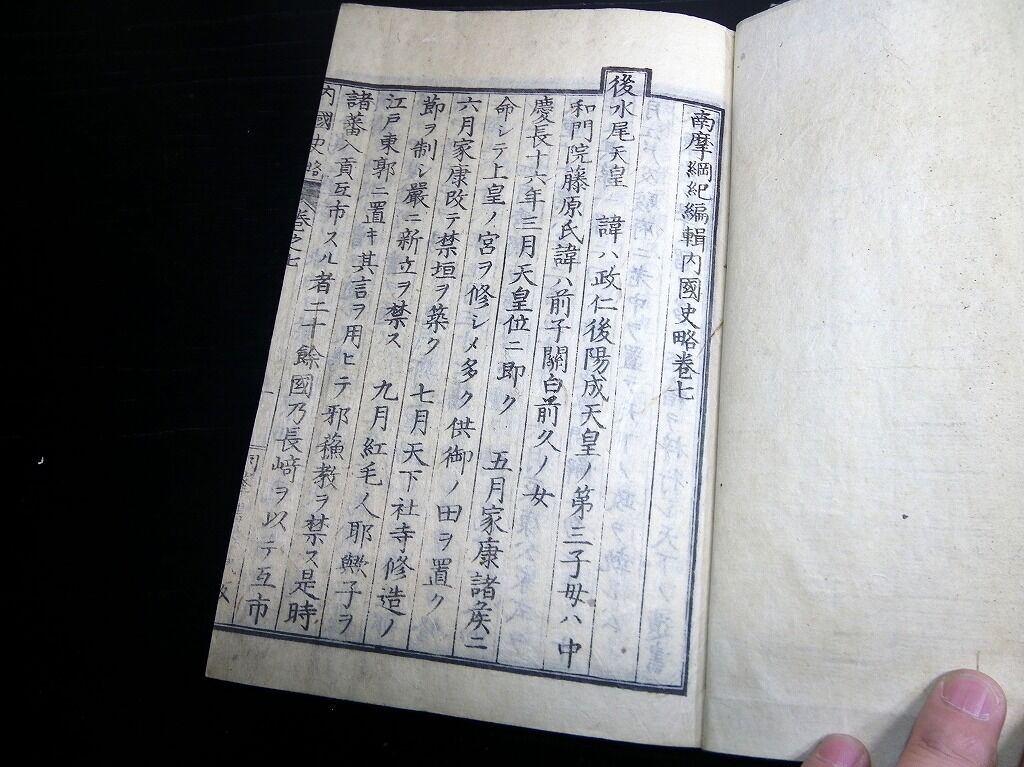 南摩綱紀編輯内國史略卷七
後水尾天皇 諱ハ政仁後陽成天皇ノ第三子母ハ中
和門院藤原氏諱ハ前子關白前久ノ女
慶長十六年三月天皇位ニ即ク 五月家康諸矦ニ
命シテ上皇ノ宮ヲ修シメ多ク供御ノ田ヲ置ク
六月家康改テ禁垣ヲ築ク 七月天下社寺修造ノ
節ヲ制シ嚴ニ新立ヲ禁ス 九月紅毛人耶𣤶子ヲ
江戸東郭ニ置キ其言ヲ用ヒテ邪蘓教ヲ禁ス是時
諸蕃入貢互市スル者二十餘國乃長﨑ヲ以テ互市
内國史略 卷之七